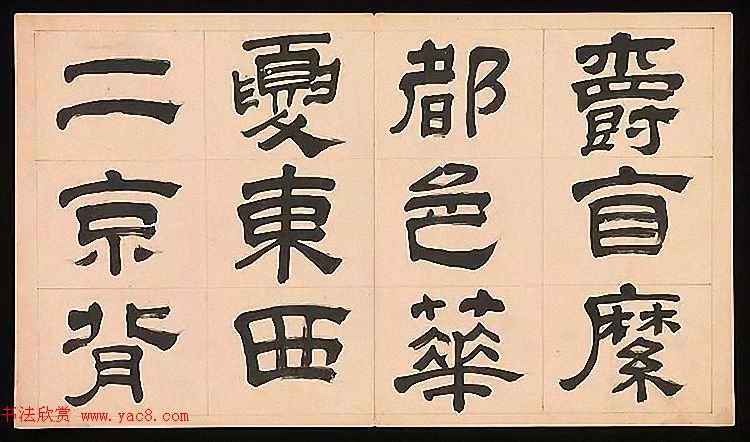 爵自縻
都邑華
夏東西
二京背
书法欣赏 www.yac8.com